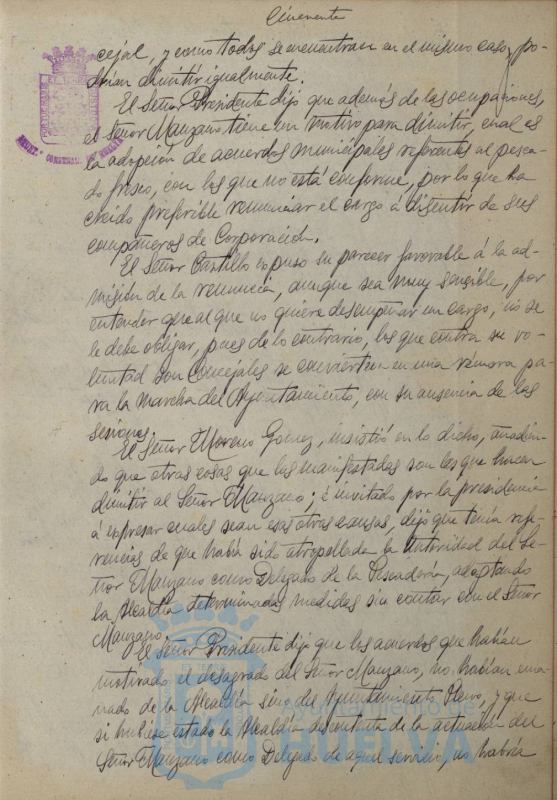 Cincuenta
cejal, y como todos se encuentran en el mismo caso, po-
drían dimitir igualmente.
El Señor Presidente dijo que además de las ocupaciones,
el Señor Manzano tiene un motivo para dimitir, cual es
la adopción de acuerdos municipales referentes al pesca-
do fresco, con los que no está conforme, por lo que ha
creido preferible renunciar el cargo á disentir de sus
compañeros de Corporación.
El Señor Castillo expuso su parecer favorable á la ad-
misión de la renuncia, aunque sea muy sensible, por
entender que al que no quiere desempeñar un cargo, no se
le debe obligar, pues de lo contrario, los que contra su vo-
luntad son Concejales se convierten en una remora pa-
ra la marcha del Ayuntamiento, con su ausencia de las
sesiones.
El Señor Moreno Gomez, insistió en lo dicho, añadien-
do que otras cosas que las manifestadas son las que hacen
dimitir al Señor Manzano; é invitado por la presidencia
á expresar cuales sean esas otras causas, dijo que tenía refe-
rencias de que había sido atropellada la Autoridad del Se-
ñor Manzano como Delegado de la Pescadería, adoptando
la Alcaldía determinadas medidas sin contar con el Señor
Manzano.
El Señor Presidente dijo que los acuerdos que habían
motivado el desagrado del Señor Manzano, no habían ema-
nado de la Alcaldía sino del Ayuntamiento Pleno, y que
si hubiese estado la Alcaldía descontenta de la actuación del
Señor Manzano como Delegado de aquel servicio, no habría
Ayuntamiento de
HUELVA